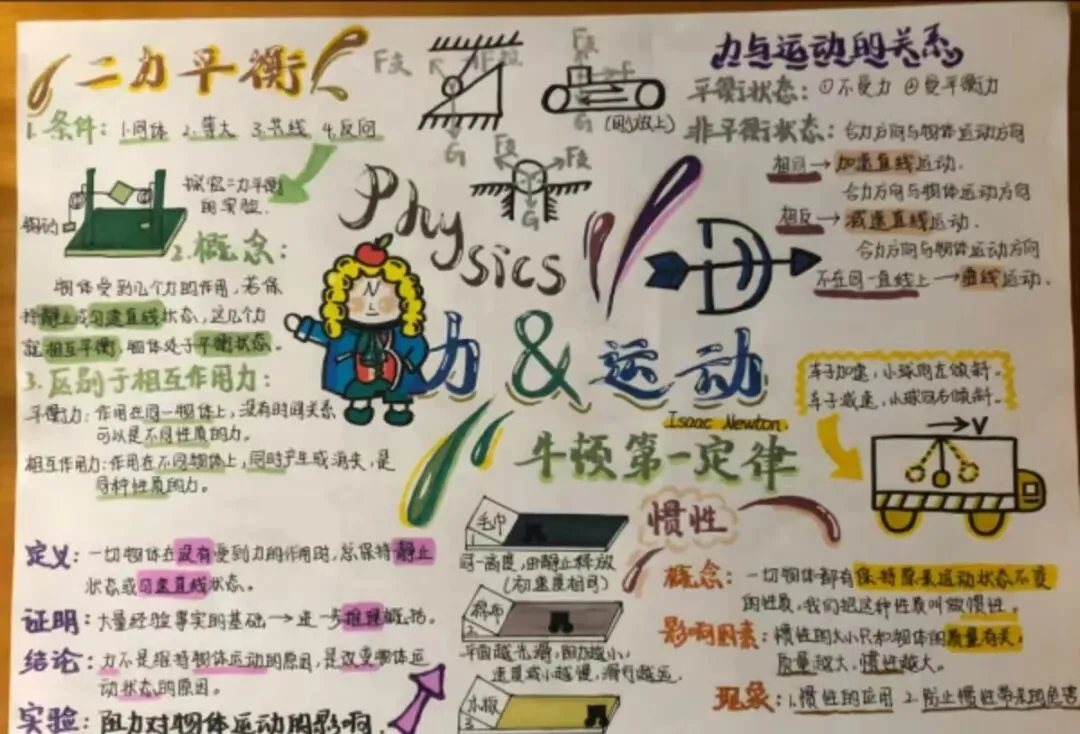 二力平衡
1. 条件: 1.同体 2.等大 3.共线 4.反向
探究二力平衡
的实验.
2.概念:
物体受到几个力的作用,若保
持静止或匀速直线状态,这几个力
就相互平衡,物体处于平衡状态。
3.区别于相互作用力:
平衡力:作用在同一物体上,没有时间关系
可以是不同性质的力。
相互作用力:作用在不同物体上,同时产生或消失,是
同种性质的力。
F支
G
F
G
(刚放上)
F支
F支
G
Physics
力与运动的关系
平衡状态: ①不受力 ②受平衡力
非平衡状态: 合力方向与物体运动方向
相同→加速直线运动.
合力方向与物体运动方向
相反→减速直线运动.
合力方向与物体运动方向
不在同一直线上→曲线运动.
力&运动
Isaac Newton
牛顿第一定律
车子加速,小球向左倾斜。
车子减速,小球向右倾斜。
V
定义: 一切物体在没有受到力的作用时,总保持静止
状态或匀速直线状态。
证明: 大量经验事实的基础→进一步推理概括。
结论: 力不是维持物体运动的原因,是改变物体运
动状态的原因。
实验: 阻力对物体运动的影响.
毛巾
1
同一高度,由静止释放
(初速度相同)
棉布
2
平面越光滑,阻力越小,
速度减小越慢,滑行越远.
木板
3
惯性
概念: 一切物体都有保持原来运动状态不变
的性质,我们把这种性质叫做惯性。
影响因素: 惯性的大小只和物体的质量有关,
质量越大,惯性越大。
现象: 1.惯性的应用 2.防止惯性带来的危害